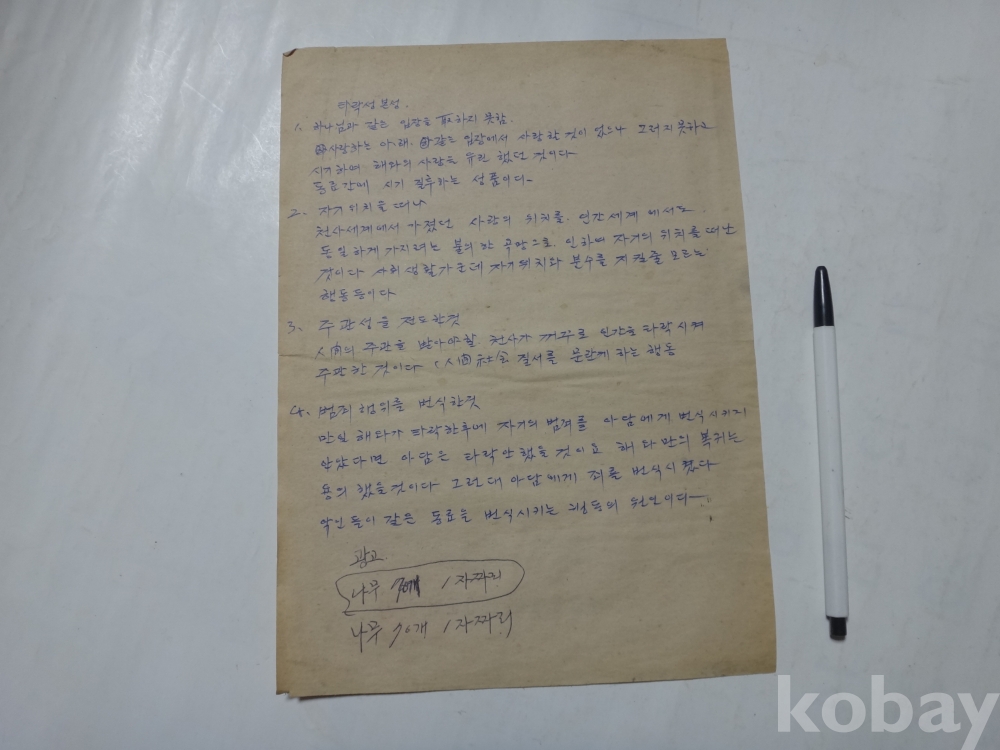 타락성 본성.
1. 하나님과 같은 입장을 取하지 못함.
사랑하는 아래. 같은 입장에서 사랑할 것이 었으나 그러지 못하고
시기하여 해와의 사랑을 유린 했던 것이다
동료간에 시기 질투하는 성품이다-
2. 자기위치을 떠나
천사세계에서 가졌던 사랑의 위치를. 인간세계 에서도
동일하게 가지려는 불의한 욕망으로. 인하여 자기의 위치를 떠난
것이다 사회생활가운데 자기위치와 분수를 지킬줄 모르는
행동등이다
3. 주관성을 전도한것
人間의 주관을 받아야할. 천사가 꺼꾸로 인간을 타락시켜
주관한 것이다 (人間社会 질서를 문란케 하는 행동
4. 범죄 행위를 번식한것
만일 해와가 타락한후에 자기의 범죄를 아담에게 번식시키지
않았다면 아담은 타락안했을 것이요 해와만의 복귀는
용의 했을것이다 그런대 아담에게 죄를 번식시켰다
악인들이 같은 동료를 번식시키는 행동의 원인이다-
광고
나무 70개 1자짜리
나무 70개 1자짜리
kobay